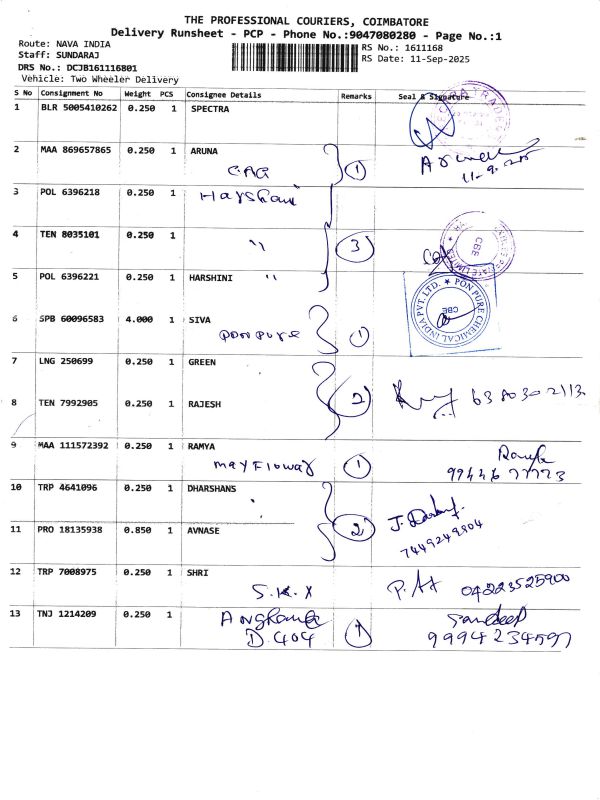 THE PROFESSIONAL COURIERS, COIMBATORE
Delivery Runsheet - PCP - Phone No.:9047080280 - Page No.:1
Route: NAVA INDIA
Staff: SUNDARAJ
DRS No.: DCJB161116801
Vehicle: Two Wheeler Delivery
RS No.: 1611168
RS Date: 11-Sep-2025
S No Consignment No Weight PCS Consignee Details Remarks Seal & Signature
1 BLR 5005410262 0.250 1 SPECTRA
2 MAA 869657865 0.250 1 ARUNA
CAG 1
11-9-25
3 POL 6396218 0.250 1 Harshani
4 TEN 8035101 0.250 1 " 3
5 POL 6396221 0.250 1 HARSHINI "
CBE
PON PURE CHEMICAL INDIA PVT. LTD. ★
CBE
6 SPB 60096583 4.000 1 SIVA
PON PURE 1
7 LNG 250699 0.250 1 GREEN
2
8 TEN 7992905 0.250 1 RAJESH
9 MAA 111572392 0.250 1 RAMYA
mayFlowar 1
10 TRP 4641096 0.250 1 DHARSHANS
11 PRO 18135938 0.850 1 AVNASE 2
7449249804
12 TRP 7008975 0.250 1 SHRI
S.K.X 04223525900
13 TNJ 1214209 0.250 1
D.404 1
Sandeep
9994234597